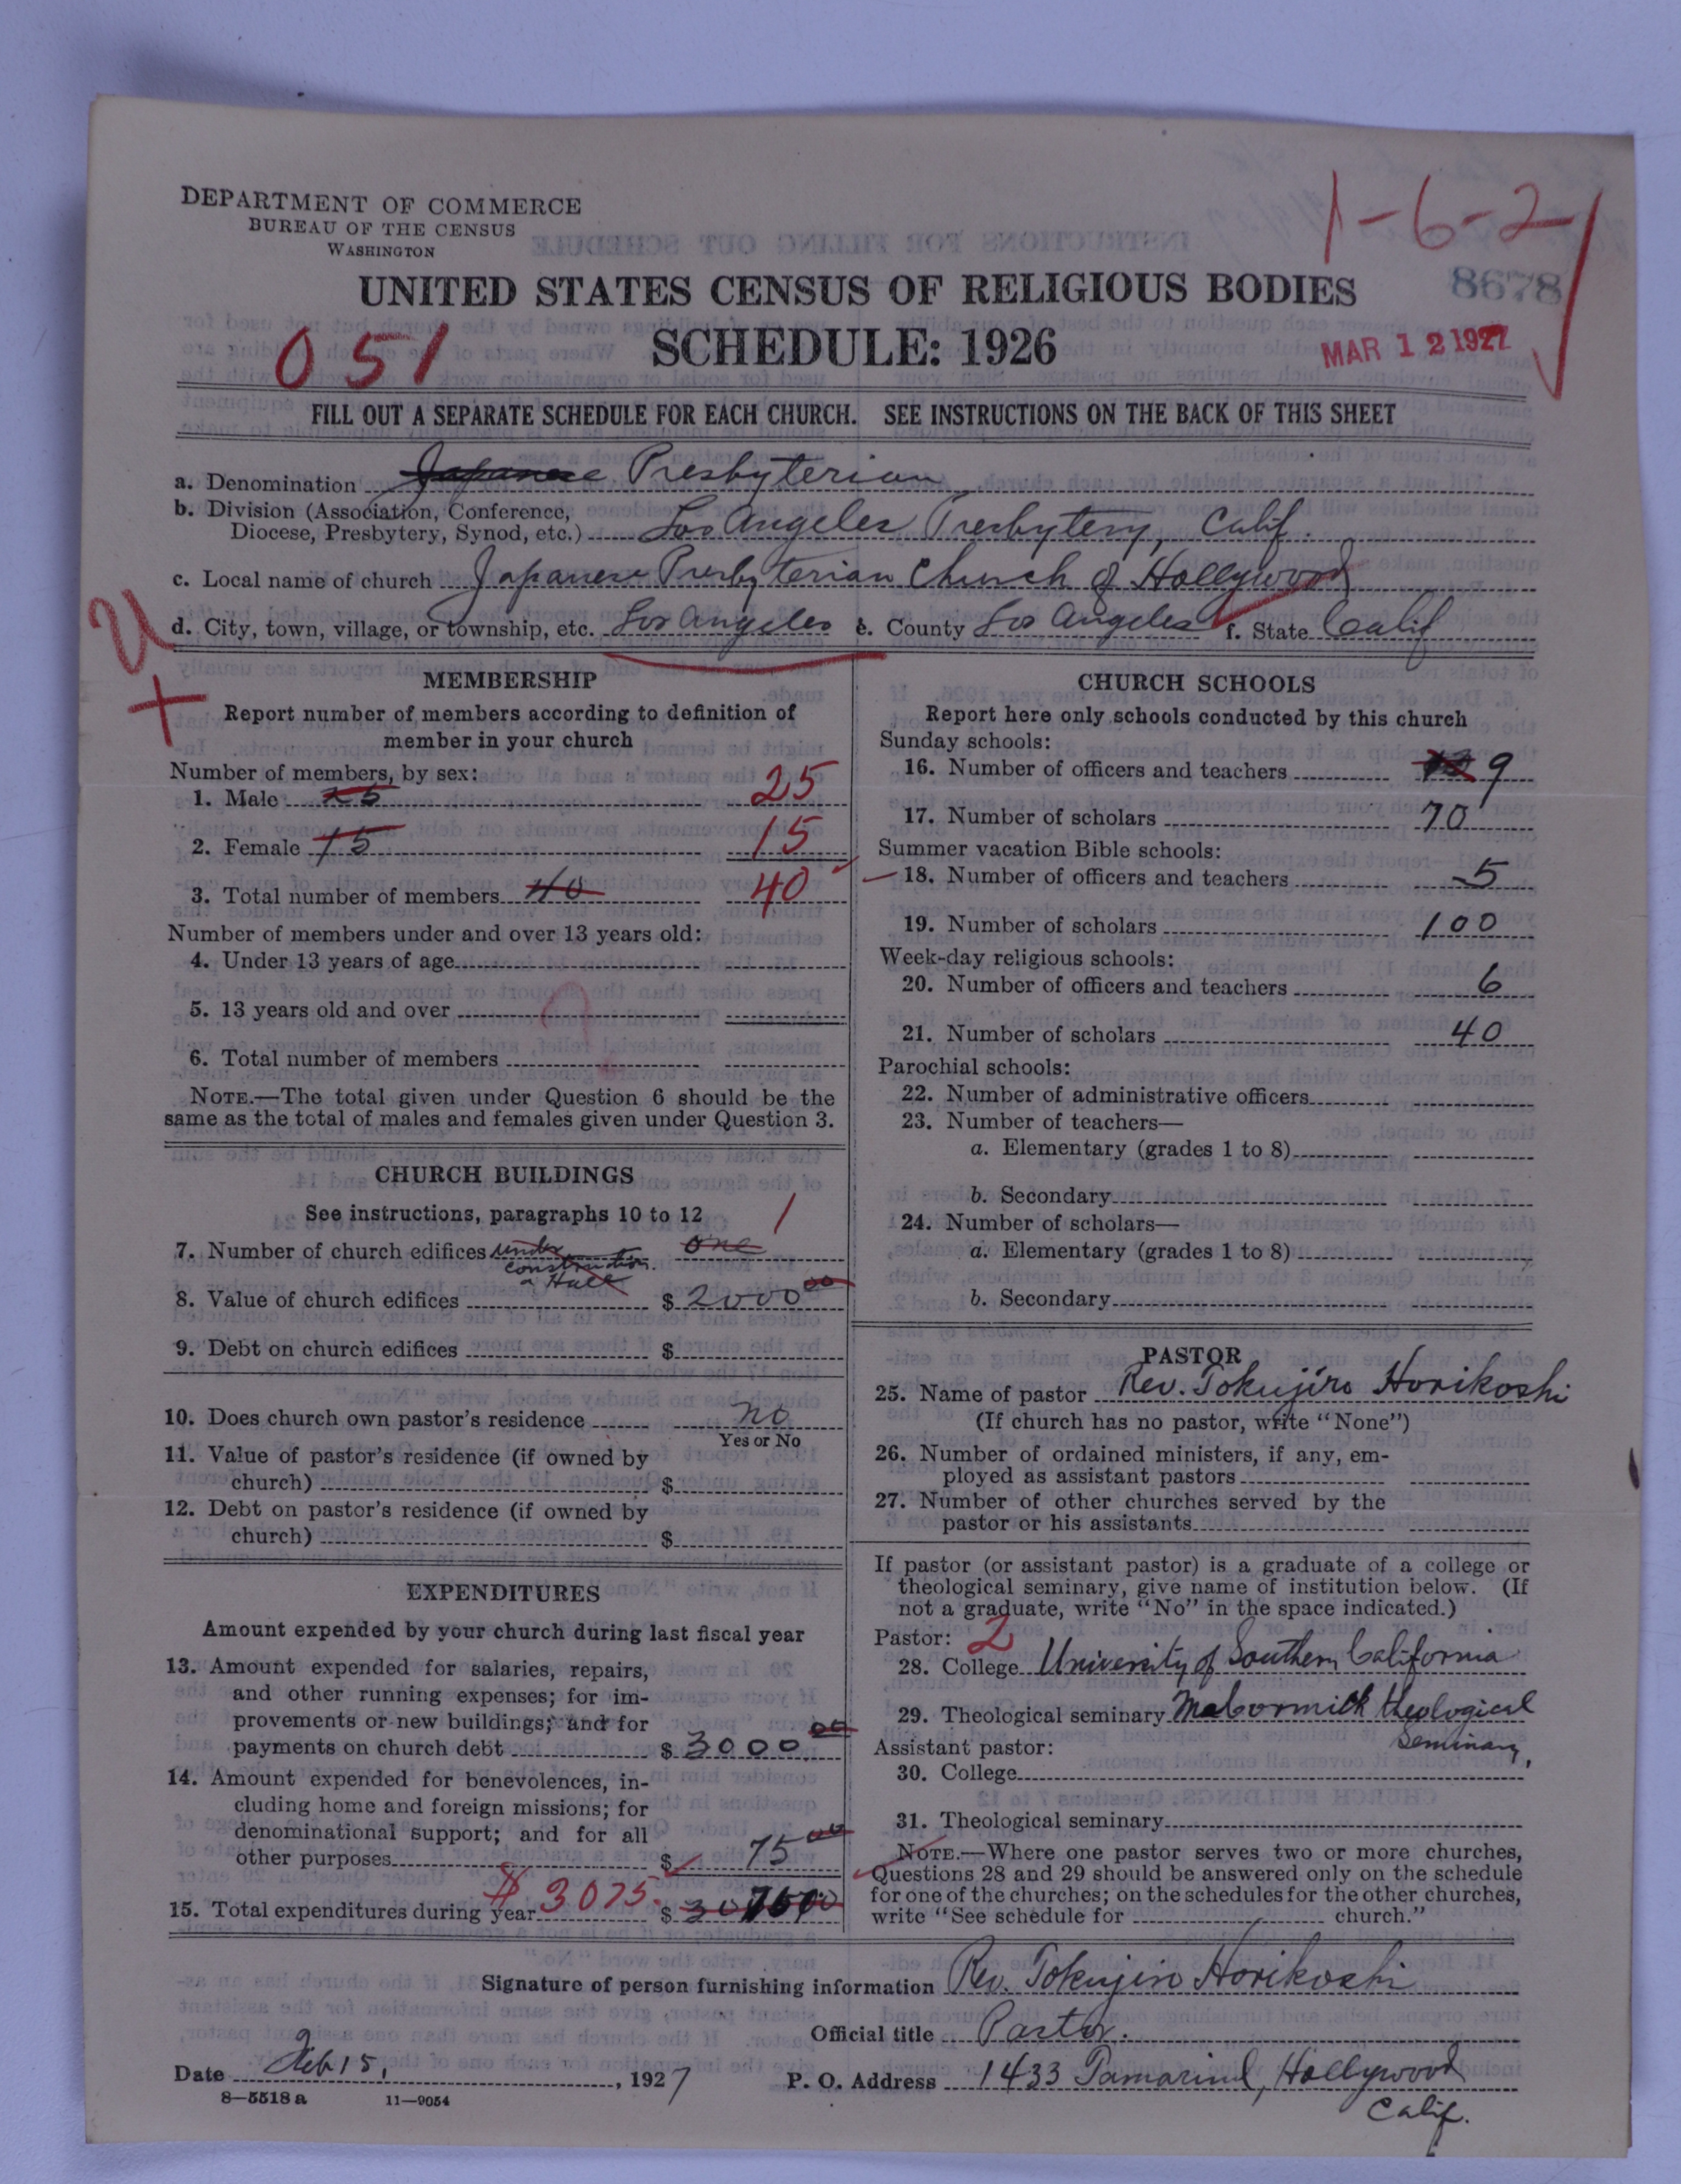 DEPARTMENT OF COMMERCE
BUREAU OF THE CENSUS
WASHINGTON
1-6-2
8678
UNITED STATES CENSUS OF RELIGIOUS BODIES
SCHEDULE: 1926
051
MAR 12 1927
FILL OUT A SEPARATE SCHEDULE FOR EACH CHURCH. SEE INSTRUCTIONS ON THE BACK OF THIS SHEET
a. Denomination Japanese Presbyterian
b. Division (Association, Conference,
Diocese, Presbytery, Synod, etc.) Los Angeles Presbytery, Calif.
c. Local name of church Japanese Presbyterian Church of Hollywood
d. City, town, village, or township, etc. Los Angeles e. County Los Angeles f. State Calif
MEMBERSHIP
Report number of members according to definition of
member in your church
Number of members, by sex:
1. Male 25 25
2. Female 15 15
3. Total number of members 40 40
Number of members under and over 13 years old:
4. Under 13 years of age
5. 13 years old and over
?
6. Total number of members
NOTE.—The total given under Question 6 should be the
same as the total of males and females given under Question 3.
CHURCH BUILDINGS
See instructions, paragraphs 10 to 12
1
7. Number of church edifices under one
construction.
a Hall
8. Value of church edifices $ 2000 00
9. Debt on church edifices $
10. Does church own pastor's residence no
Yes or No
11. Value of pastor's residence (if owned by
church) $
12. Debt on pastor's residence (if owned by
church) $
EXPENDITURES
Amount expended by your church during last fiscal year
13. Amount expended for salaries, repairs,
and other running expenses; for im-
provements or new buildings; and for
payments on church debt $ 3000 00
14. Amount expended for benevolences, in-
cluding home and foreign missions; for
denominational support; and for all
other purposes $ 75 00
15. Total expenditures during year $ 3075. $
CHURCH SCHOOLS
Report here only schools conducted by this church
Sunday schools:
16. Number of officers and teachers 9
17. Number of scholars 70
Summer vacation Bible schools:
18. Number of officers and teachers 5
19. Number of scholars 100
Week-day religious schools:
20. Number of officers and teachers 6
21. Number of scholars 40
Parochial schools:
22. Number of administrative officers
23. Number of teachers—
a. Elementary (grades 1 to 8)
b. Secondary
24. Number of scholars—
a. Elementary (grades 1 to 8)
b. Secondary
PASTOR
25. Name of pastor Rev. Tokujiro Horikoshi
(If church has no pastor, write "None")
26. Number of ordained ministers, if any, em-
ployed as assistant pastors
27. Number of other churches served by the
pastor or his assistants
If pastor (or assistant pastor) is a graduate of a college or
theological seminary, give name of institution below. (If
not a graduate, write "No" in the space indicated.)
Pastor: 2
28. College University of Southern California
29. Theological seminary McCormick theological
Seminary,
Assistant pastor:
30. College
31. Theological seminary
NOTE.—Where one pastor serves two or more churches,
Questions 28 and 29 should be answered only on the schedule
for one of the churches; on the schedules for the other churches,
write "See schedule for church."
Signature of person furnishing information Rev. Tokujiro Horikoshi
Official title Pastor.
Date Feb 15, 1927
P. O. Address 1433 Tamarind, Hollywood
Calif.
8-5518 a 11-9054